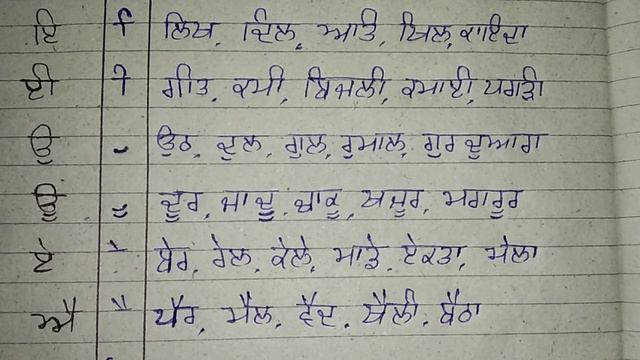 ਇ ਿ ਲਿਖ, ਦਿਲ, ਖਿਲ, ਕਾਇਦਾ
ਈ ੀ ਗੀਤ, ਕਮੀ, ਬਿਜਲੀ, ਕਮਾਈ, ਪਗੜੀ
ਉ ੁ ਉਠ, ਦੁਲ, ਗੁਲ, ਰੁਮਾਲ, ਗੁਰਦੁਆਰਾ
ਊ ੂ ਦੂਰ, ਜਾਦੂ, ਚਾਕੂ, ਖਜੂਰ, ਮਗਰੂਰ
ਏ ੇ ਬੇਰ, ਰੇਲ, ਕੇਲੇ, ਮਾੜੇ, ਏਕਤਾ, ਮੇਲਾ
ਐ ੈ ਪੈਰ, ਮੈਲ, ਵੈਦ, ਥੈਲੀ, ਬੈਠਾ